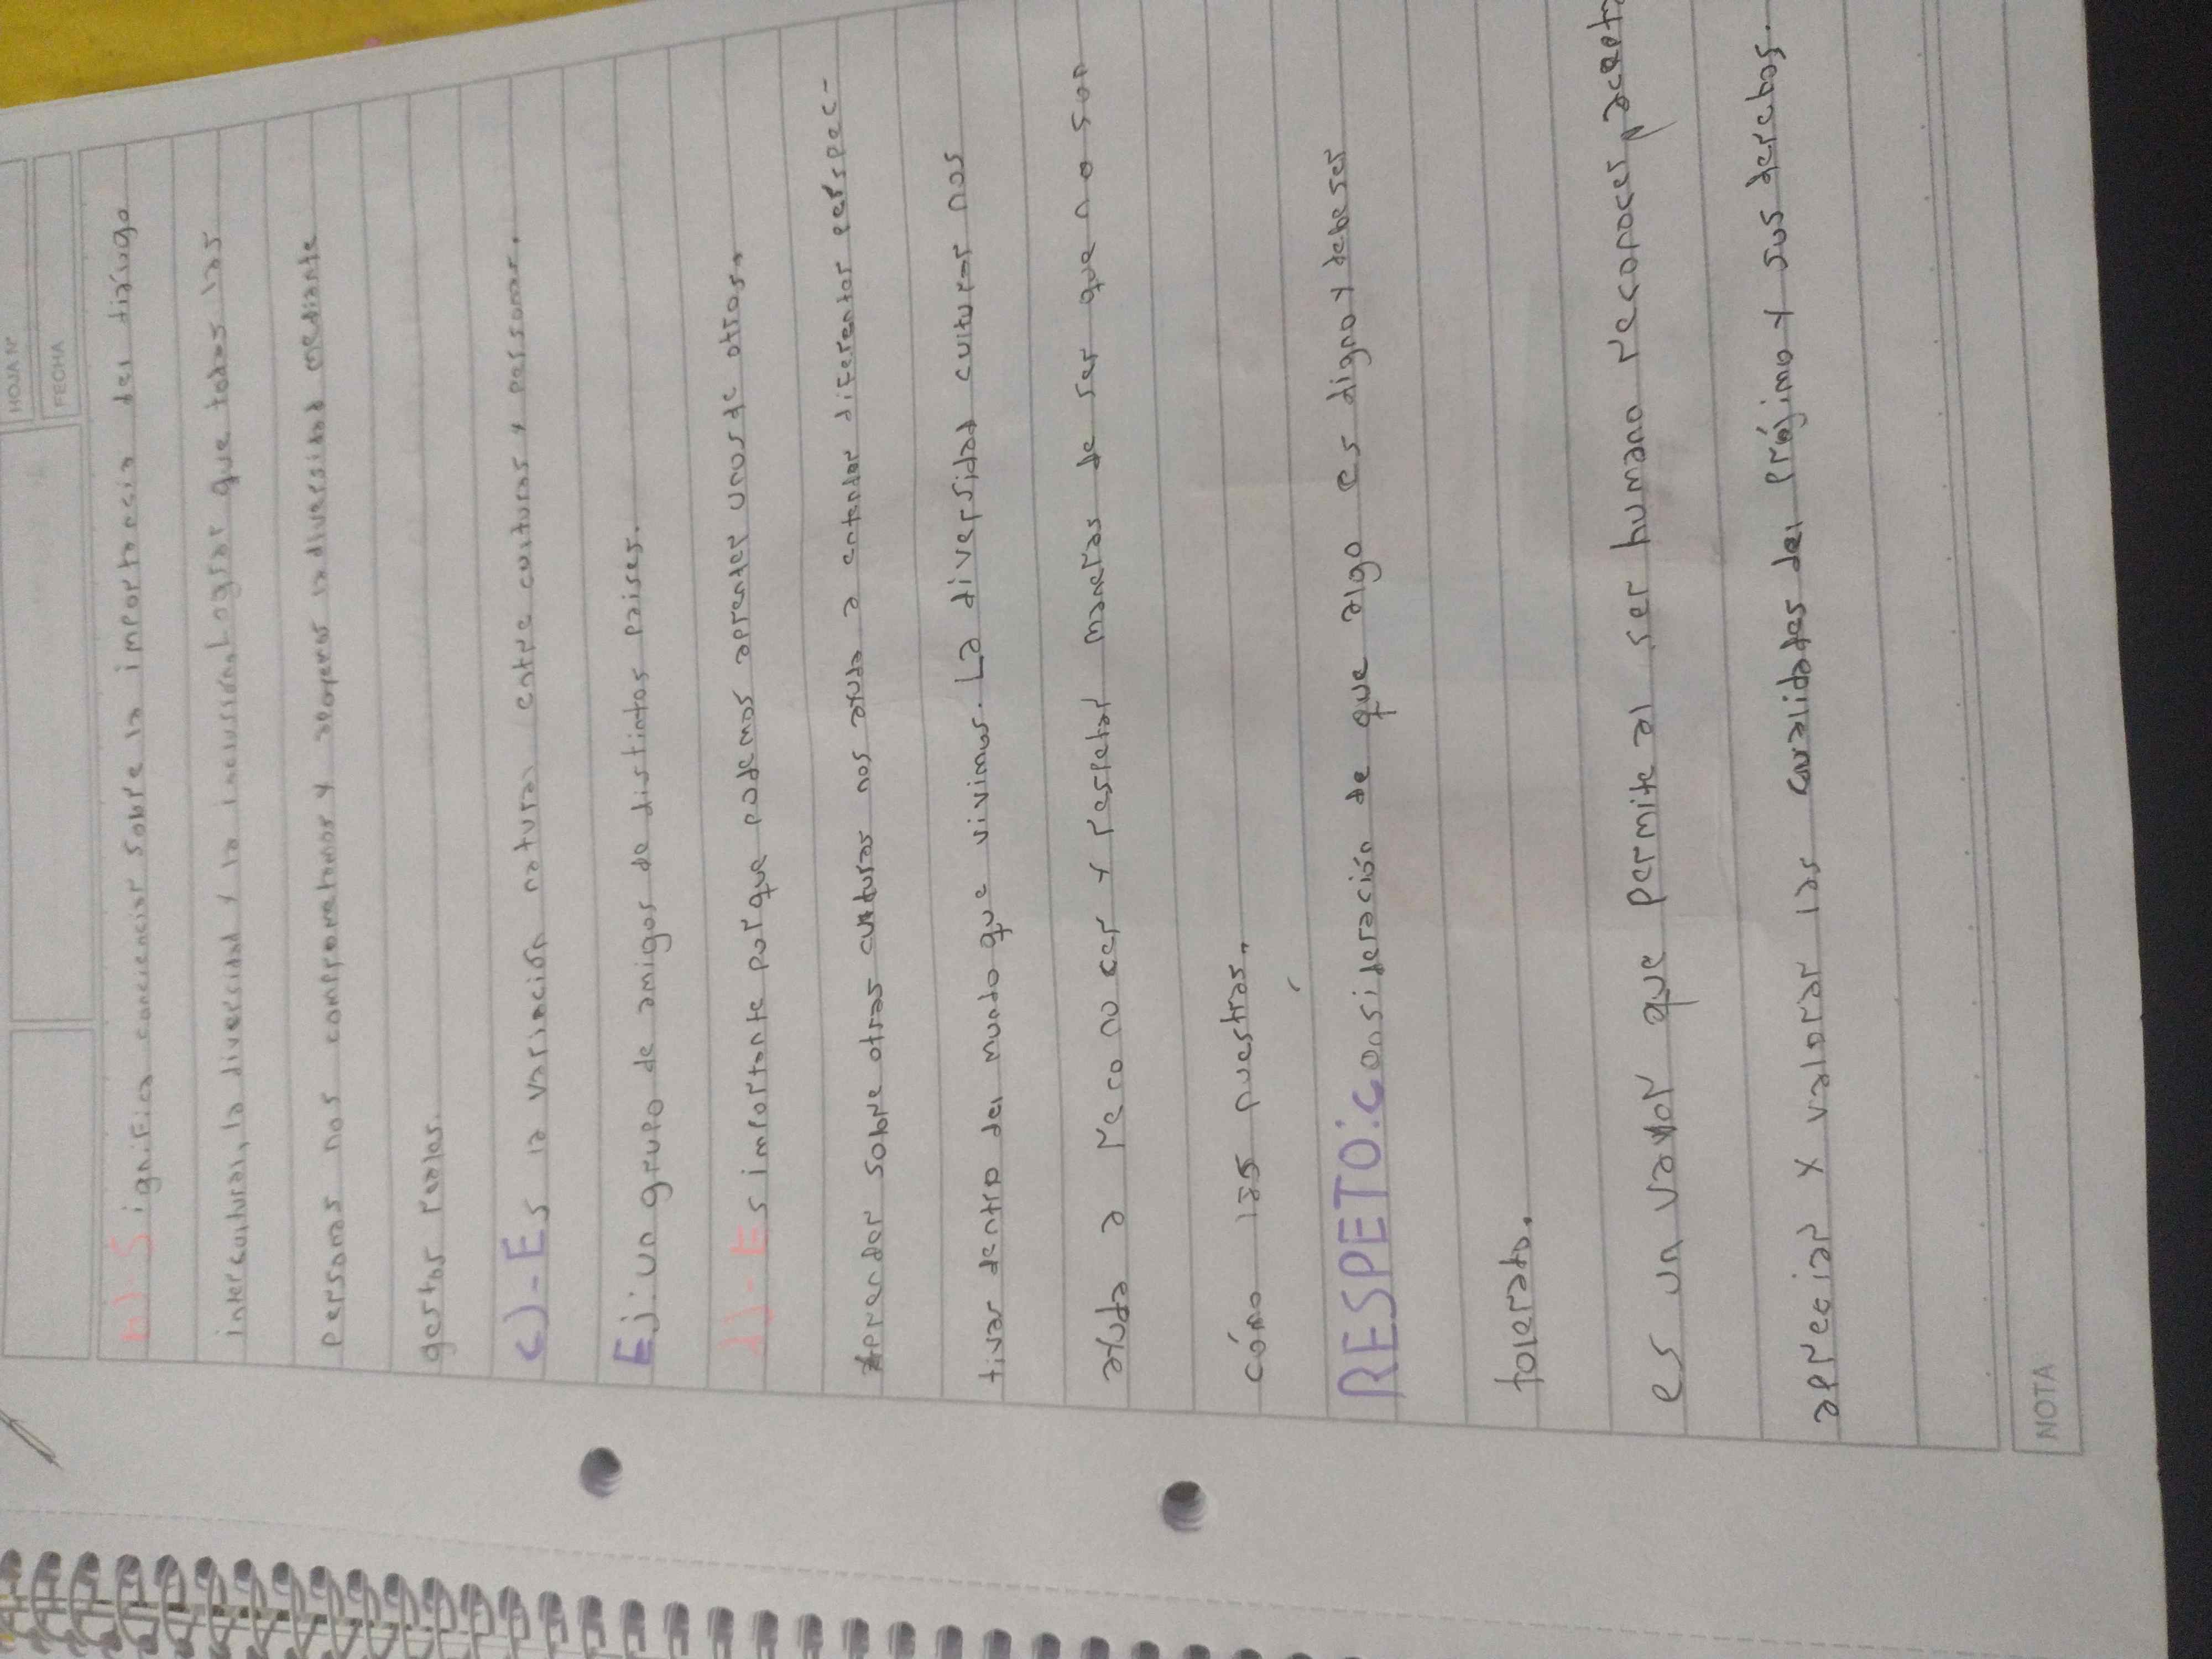 HOJA Nº
FECHA
b)-Significa concienciar sobre la importancia del dialogo
intercultural, la diversidad y la inclusión. Lograr que todas las
personas nos comprometamos y apoyemos la diversidad mediante
gestos reales.
c)-Es la variación natural entre culturas y personas.
Ej: un grupo de amigos de distintos paises.
d)-Es importante porque podemos aprender unos de otros.
Aprender sobre otras culturas nos ayuda a entender diferentes perspec-
tivas dentro del mundo que vivimos. La diversidad cultural nos
ayuda a reconocer y respetar maneras de ser que no son
cómo las nuestras.
RESPETO: consideración de que algo es digno y debe ser
tolerado.
es un valor que permite al ser humano reconocer, acepta
apreciar y valorar las cualidades del prójimo y sus derechos.
NOTA